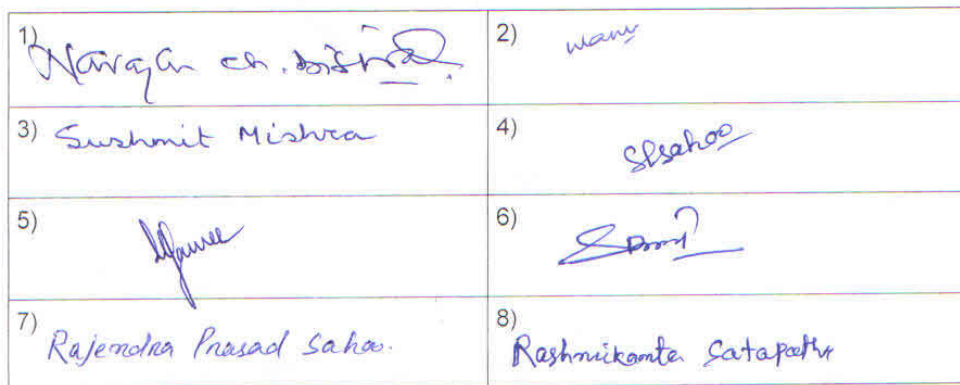 1) Narayan ch.
2) manu
3) Sushmit Mishra
4) Slsahoo
5)
6)
7) Rajendra Prasad Sahoo.
8) Rashmikanta Satapathy